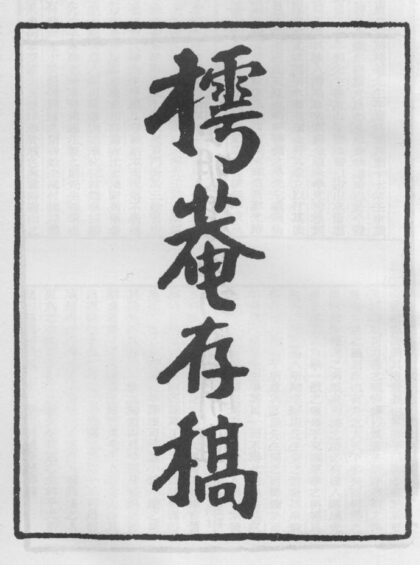 樗菴存稿